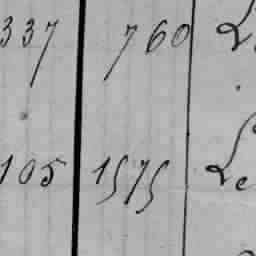 337 760
105 1575 Le